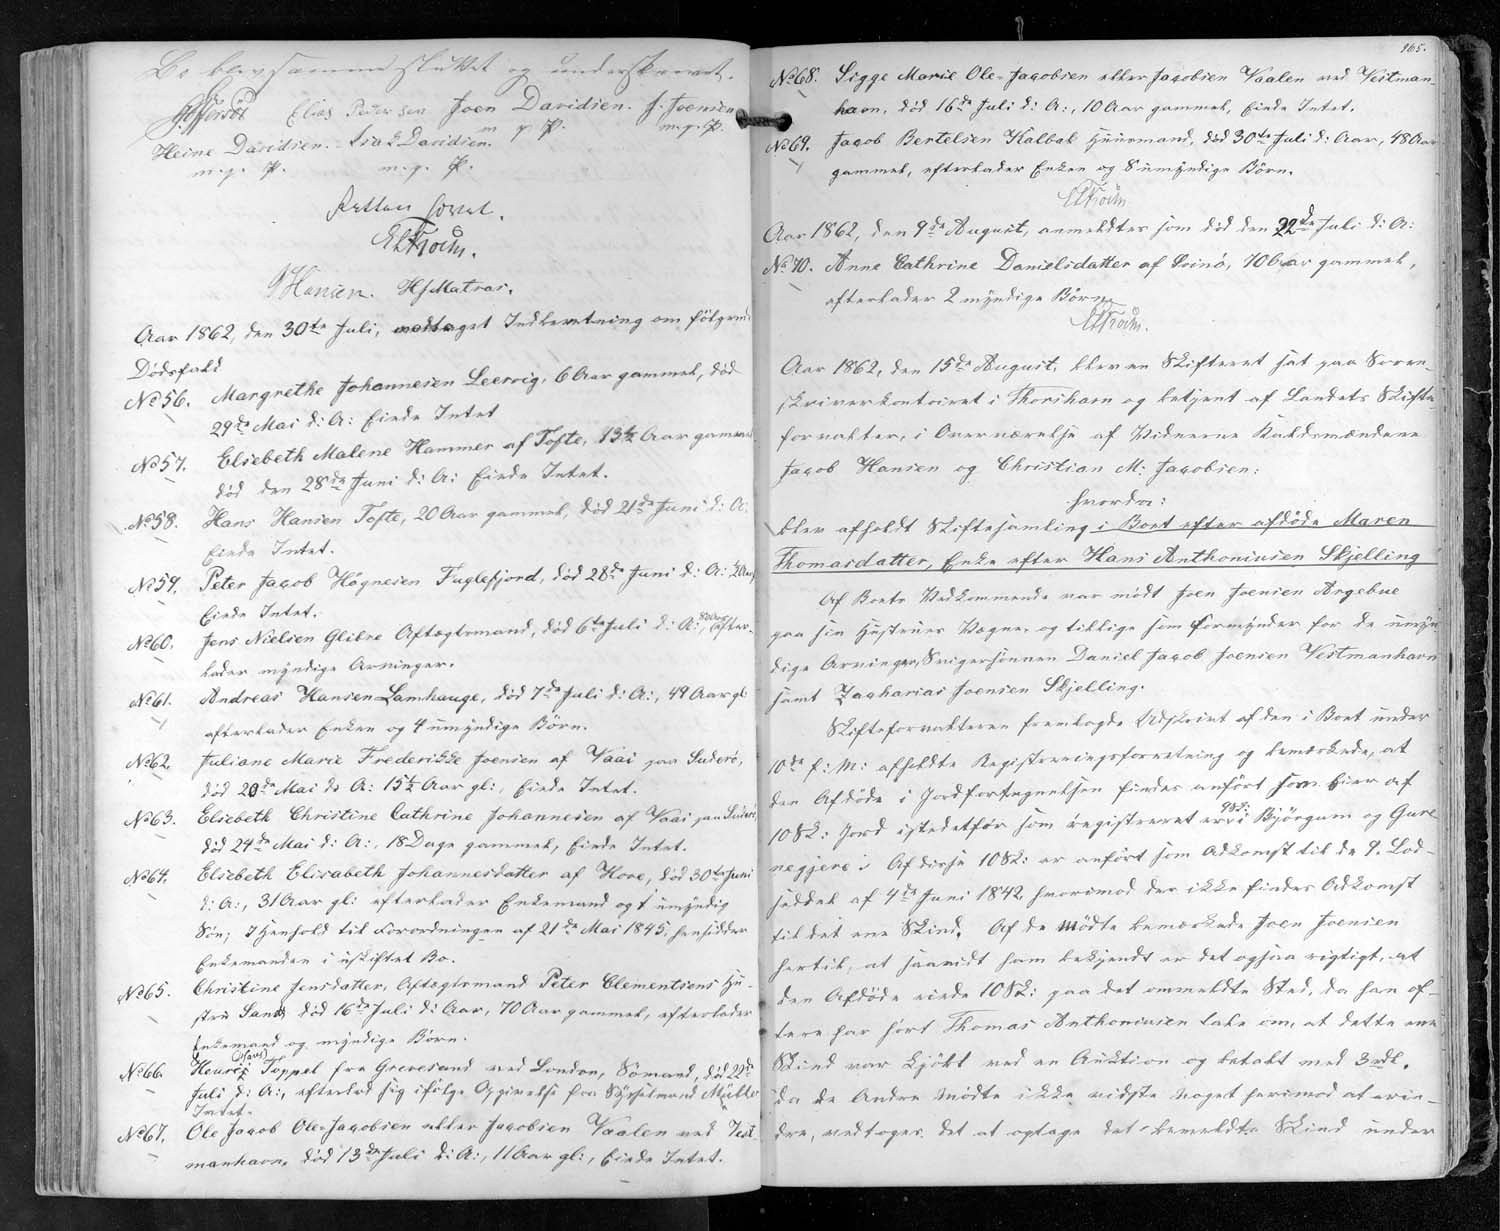 Bo blev saaman sluttet og underskrevet.
Elias Petersen Joen Davidsen. J. Joensen
m. p. P. m. p. P.
Heine Davidsen. Isak Davidsen.
m. p. P. m. p. P.
Retten hævet.
EKroün.
JHansen. HJMatras.
Aar 1862, den 30te Juli, modtaget Indberetning om følgende
Dødsfald
No 56. Margrethe Johannesen Leervig, 6 Aar gammel, død
29de Mai d: A: Eiede Intet
No 57. Elsebeth Malene Hammer af Tofte, 13½ Aar gammel
død den 28de Juni d: A: Eiede Intet.
No 58. Hans Hansen Tofte, 20 Aar gammel, død 21de Juni d: A:
Eiede Intet.
No 59. Peter Jacob Høgnesen Fuglefjord, død 28de Juni d: A: 2 Aar
Eiede Intet.
No 60. Jens Nielsen Glibre Aftægtsmand, død 6te Juli d: A:, efter-
lader myndige Arvinger.
No 61. Andreas Hansen Lamhauge, død 7de Juli d: A:, 49 Aar gl
efterlader Enken og 4 umyndige Børn.
No 62. Juliane Marie Frederikke Joensen af Vaai paa Suderø,
død 20de Mai d: A: 15½ Aar gl:, Eiede Intet.
No 63. Elsebeth Christine Cathrine Johannesen af Vaai paa Suderø,
død 24de Mai d: A:, 18 Dage gammel, Eiede Intet.
No 64. Elsebeth Elisabeth Johannesdatter af Hove, død 30te Juni
d: A:, 31 Aar gl: efterlader Enkemand og 1 umyndig
Søn; I Henhold til Forordningen af 21de Mai 1845, hensidder
Enkemanden i uskiftet Bo.
No 65. Christine Jensdatter, Aftægtsmand Peter Clementsens Hu-
stru Sand død 16de Juli d: Aar, 70 Aar gammel, efterlader
Enkemand og myndige Børn.
No 66. Toppel fra Gravesand ved London, Sømand, død 22de
Juli d: A:, efterlod sig ifølge Opgivelse fra Sysselmand Müller
Intet.
No 67. Ole Jacob Ole-Jacobsen eller Jacobsen Vaalen ved Vest-
manhavn, død 13de Juli d: A:, 11 Aar gl:, Eiede Intet.
165.
No 68. Sigge Marie Ole-Jacobsen eller Jacobsen Vaalen ved Vestman-
havn, død 16de Juli d: A:, 10 Aar gammel, Eiede Intet.
No 69. Jacob Bertelsen Kalbak Huusmand, død 30te Juli d: Aar, 48 Aar
gammel, efterlader Enken og 8 umyndige Børn.
EKroün
Aar 1862, den 9de August, anmeldtes som død den 22de Juli d: A:
No 70. Anne Cathrine Danielsdatter af Svinø, 70 Aar gammel,
efterlader 2 myndige Børn.
EKroün.
Aar 1862, den 15de August, blev en Skifteret sat paa Soren-
skriverkontoiret i Thorshavn og betjent af Landets Skifte-
forvalter, i Overværelse af Vidnerne Kaldsmændene
Jacob Hansen og Christian M: Jacobsen:
hvorda:
blev afholdt Skiftesamling i Boet efter afdøde Maren
Thomasdatter, Enke efter Hans Anthoniusen Skjelling
Af Boets Vedkommende var mødt Joen Joensen Argebue
paa sin Hustrues Vegne, og tillige som Formynder for de umyn
dige Arvinger, Svigersønnen Daniel Jacob Joensen Vestmanhavn
samt Zacharias Joensen Skjelling.
Skifteforvalteren fremlagde Udskrivt af den i Boet under
10de f: M: afholdte Registreringsforretning og bemærkede, at
den Afdøde i Jordfortegnelsen findes anført som Eier af
10 Sk: Jord istedetfor som registreret er 9 Sk: i Bjørgum og Gure
negjere i Afdirse 10 Sk: er anført som Adkomst til de 9. Lod-
seddel af 4de Juni 1842 hvorimod der ikke findes Adkomst
til det ene Skind. Af de Mødte bemærkede Joen Joensen
hertil, at saavidt ham bekjendt er det ogsaa rigtigt, at
den Afdøde eiede 10 Sk: paa det ommeldte Sted, da han of-
tere har hørt Thomas Anthoniusen tale om, at dette ene
Skind var kjøbt ved en Auktion og betalt med 3 rdl.
da de Andre Mødte ikke vidste noget herimod at erin-
dre, vedtoges det at optage det bemeldte Skind under